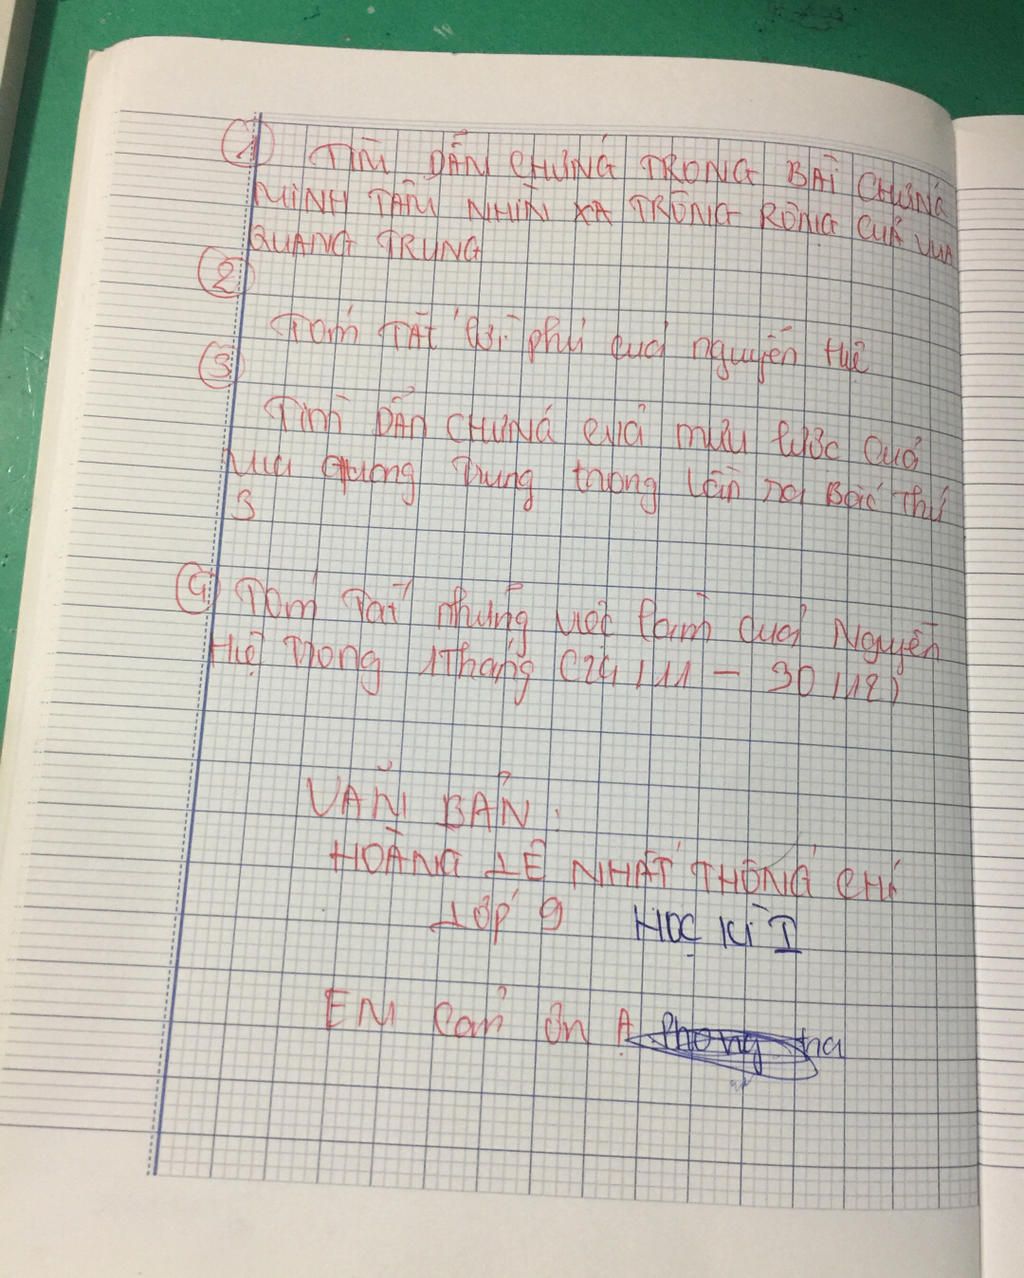 ① TÌM DẪN CHỨNG TRONG BÀI CHỨNG
MINH TẦM NHÌN XA TRÔNG RỘNG CUẢ VUA
QUANG TRUNG
②
Tóm TẮT lời phủ cuả nguyễn Huệ
③
Tìm DẪN CHỨNG cuả mưu lược cuả
vua Quang Trung trong lần ra Bắc Thứ
3
④ Tóm Tắt những việc làm cuả Nguyễn
Huệ Trong 1 Tháng (24/11 - 30/12)
VĂN BẢN :
HOÀNG LÊ NHẤT THỐNG CHÍ
LỚP 9 HỌC KÌ I
EM cảm ơn Ạ